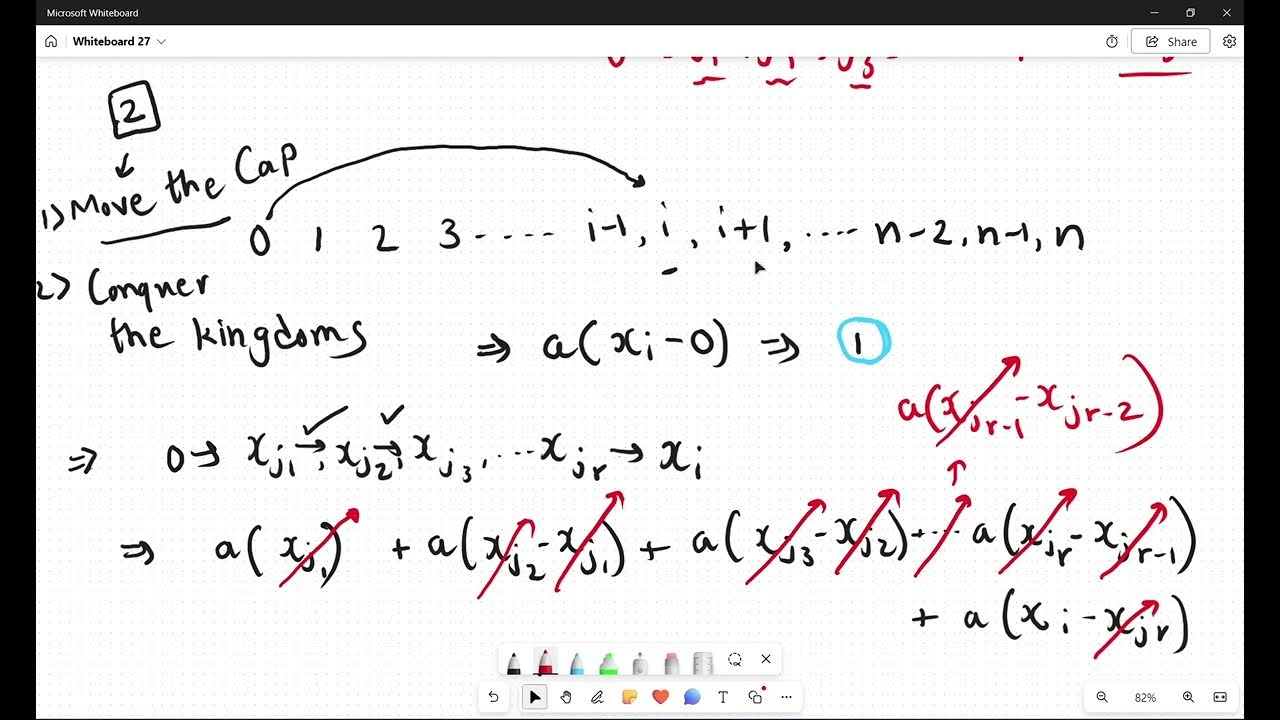 Microsoft Whiteboard
Whiteboard 27
Share
2
1) Move the Cap
0 1 2 3 ----- i-1, i, i+1, ..... n-2, n-1, n
2) Conquer
the kingdoms
⇒ a(xi-0) ⇒ 1
a(xjr-1 - xjr-2)
⇒ 0 → xj1 → xj2 → xj3, ... xjr → xi
⇒ a(xj1) + a(xj2 - xj1) + a(xj3 - xj2) + ... a(xjr - xjr-1)
+ a(xi - xjr)
82%